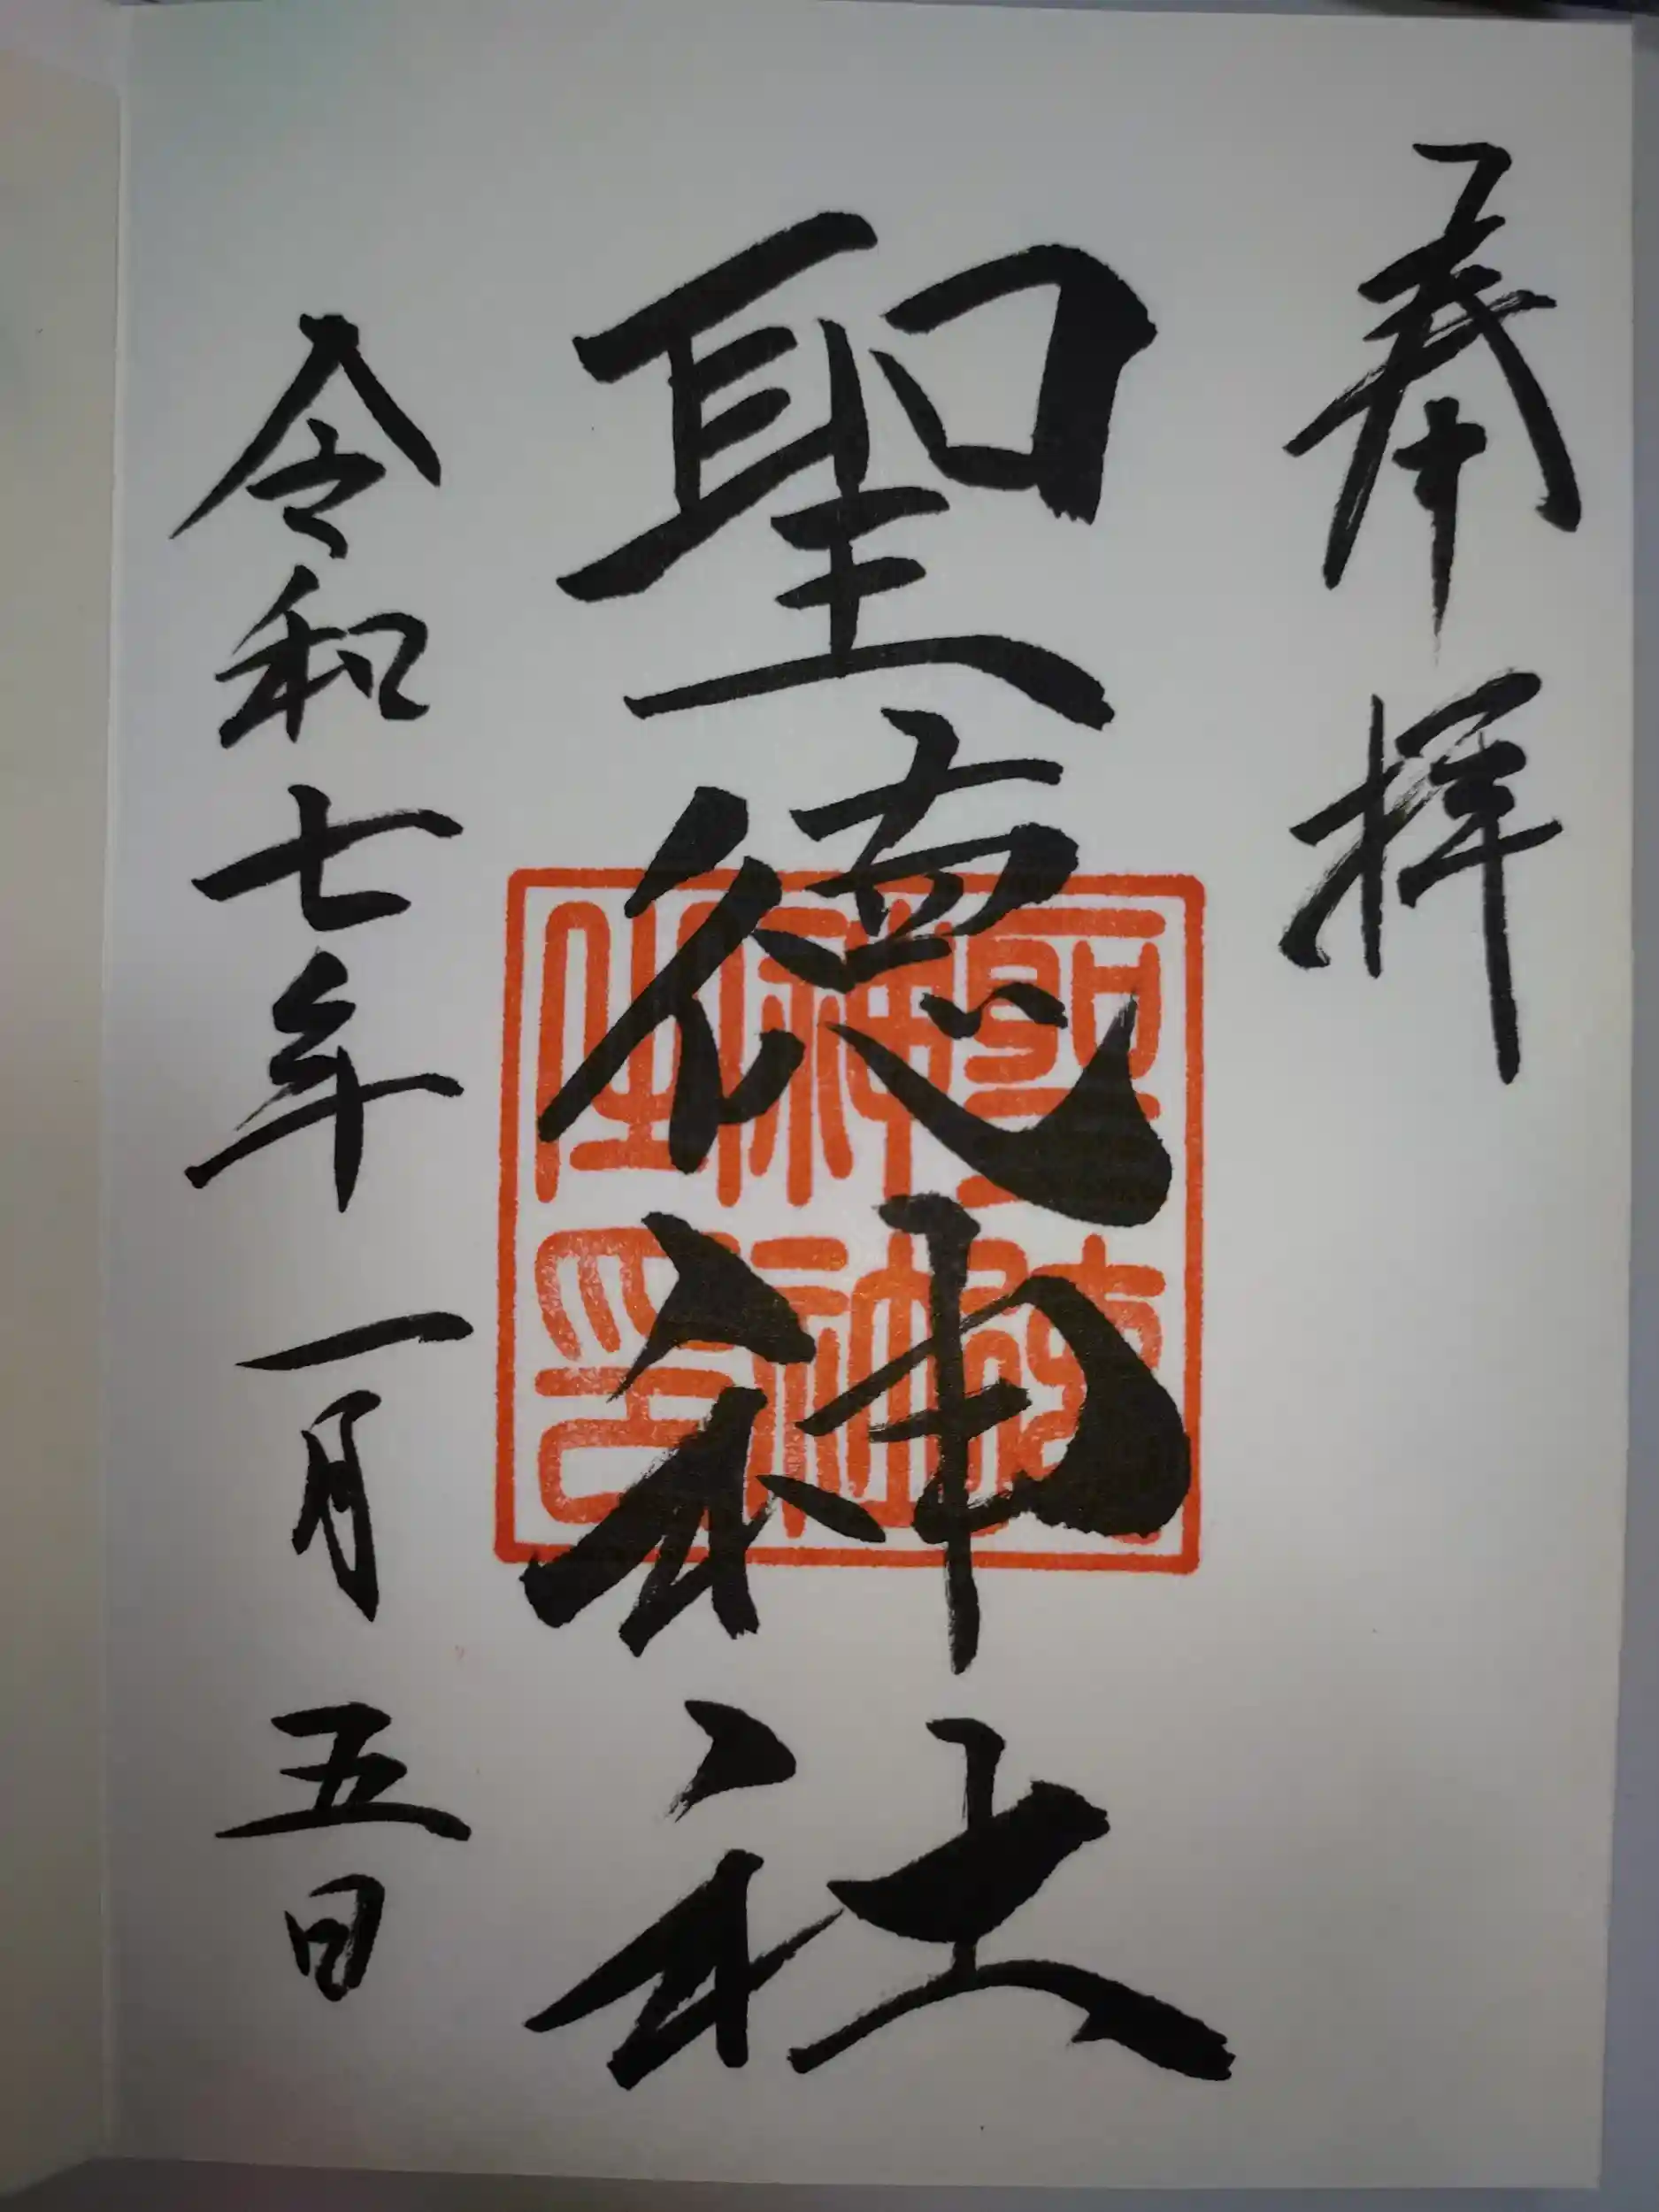 奉拝
聖徳神社
令和七年一月五日
聖徳
神社
之印